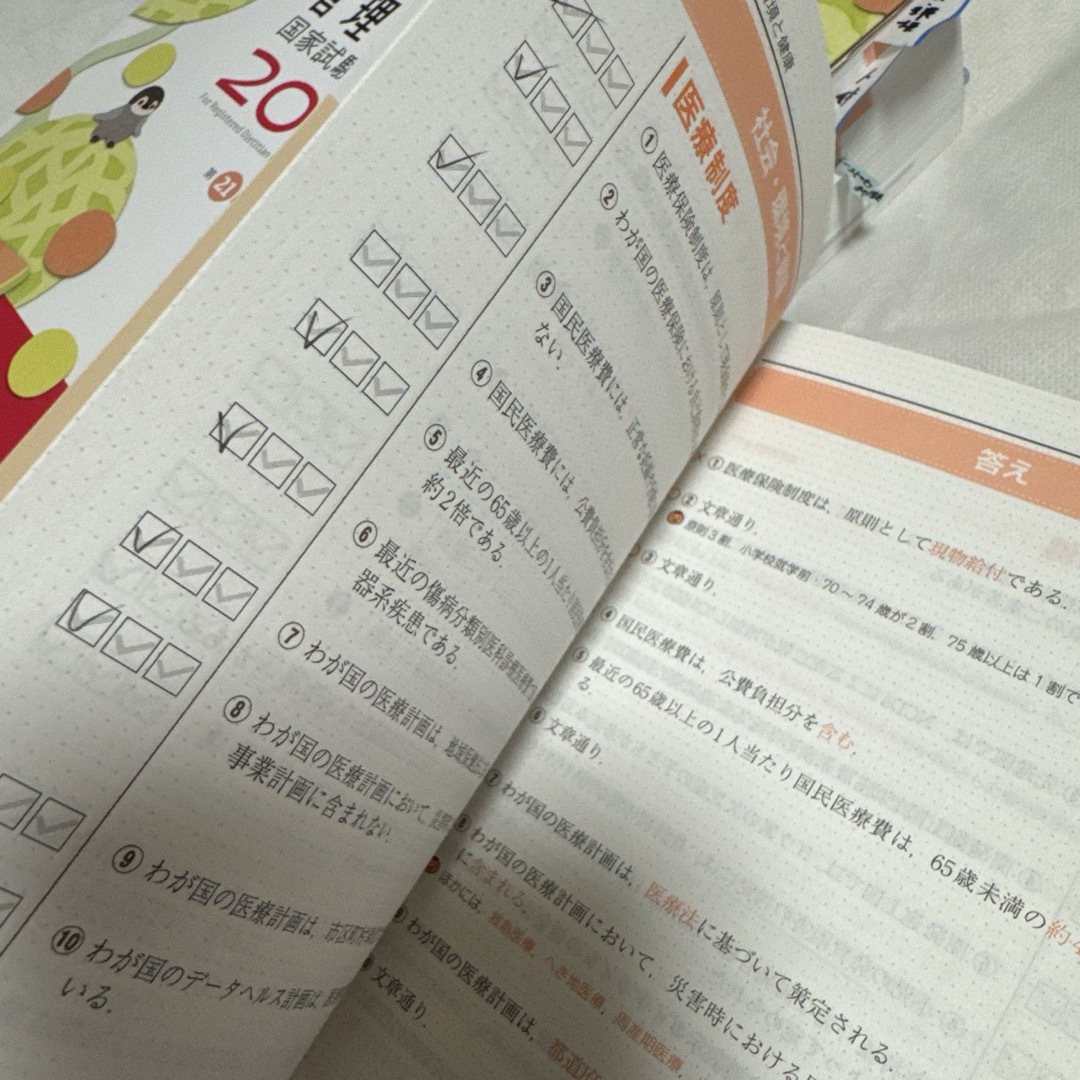 理
国家試験
20
For Registered Dietitian
21
環境と健康
社会・
医療制度
① 医療保険制度は,
② わが国の医療保険における
③ 国民医療費には, 正常な
ない.
④ 国民医療費には, 公費負担分
⑤ 最近の65歳以上の1人当たり
約2倍である.
⑥ 最近の傷病分類別医科診療医療費
器系疾患である.
⑦ わが国の医療計画は, 地域
⑧ わが国の医療計画において,
事業計画に含まれない.
⑨ わが国の医療計画は, 市区町村
⑩ わが国のデータヘルス計画は,
いる.
答え
① 医療保険制度は, 原則として現物給付である.
② 文章通り
原則3割, 小学校就学前・70〜74歳が2割, 75歳以上は1割で
③ 文章通り.
④ 国民医療費は, 公費負担分を含む.
⑤ 最近の65歳以上の1人当たり国民医療費は, 65歳未満の約
る.
⑥ 文章通り.
⑦ わが国の医療計画は, 医療法に基づいて策定される.
⑧ わが国の医療計画において, 災害時における
に含まれる.
ほかには, 救急医療, へき地医療, 周産期医療,
わが国の医療計画は, 都道府
文章通り.